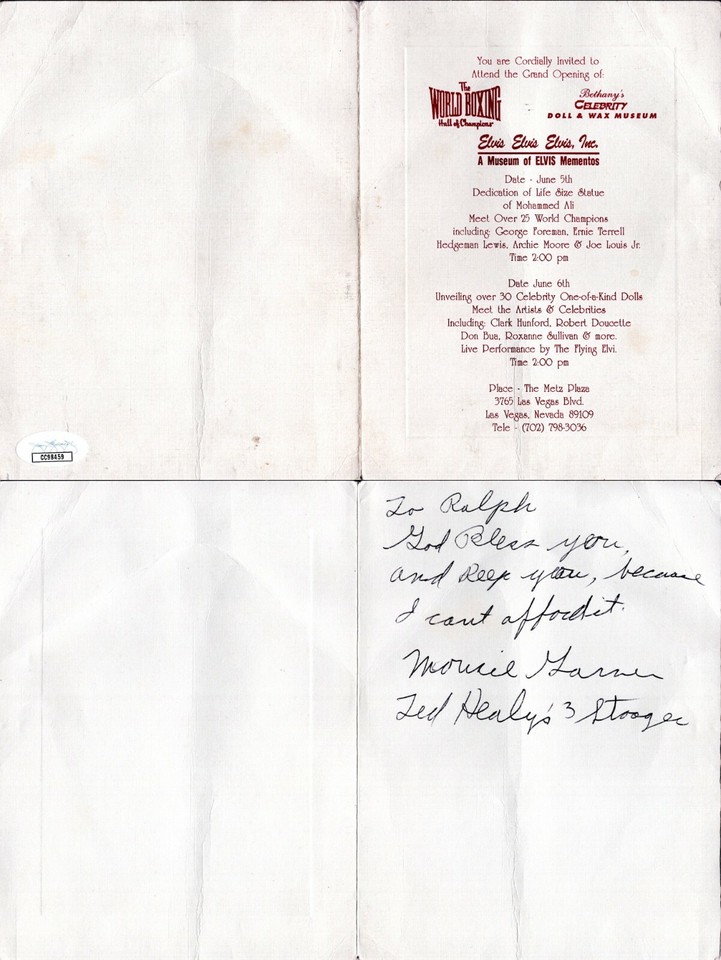 You are Cordially Invited to
Attend the Grand Opening of:
The
WORLD BOXING
Hall of Champions
Bethany's
CELEBRITY
DOLL & WAX MUSEUM
Elvis Elvis Elvis, Inc.
A Museum of ELVIS Mementos
Date - June 5th
Dedication of Life Size Statue
of Mohammed Ali
Meet Over 25 World Champions
including: George Foreman, Ernie Terrell
Hedgeman Lewis, Archie Moore & Joe Louis Jr.
Time 2:00 pm
Date June 6th
Unveiling over 30 Celebrity One-of-a-Kind Dolls
Meet the Artists & Celebrities
Including: Clark Hunford, Robert Doucette
Don Bua, Roxanne Sullivan & more.
Live Performance by The Flying Elvi.
Time 2:00 pm
Place - The Metz Plaza
3765 Las Vegas Blvd.
Las Vegas, Nevada 89109
Tele - (702) 798-3036
CC98459
To Ralph
God Bless you,
and Keep you, because
I cant afford it.
Mousie Garner
Ted Healy's 3 Stooges